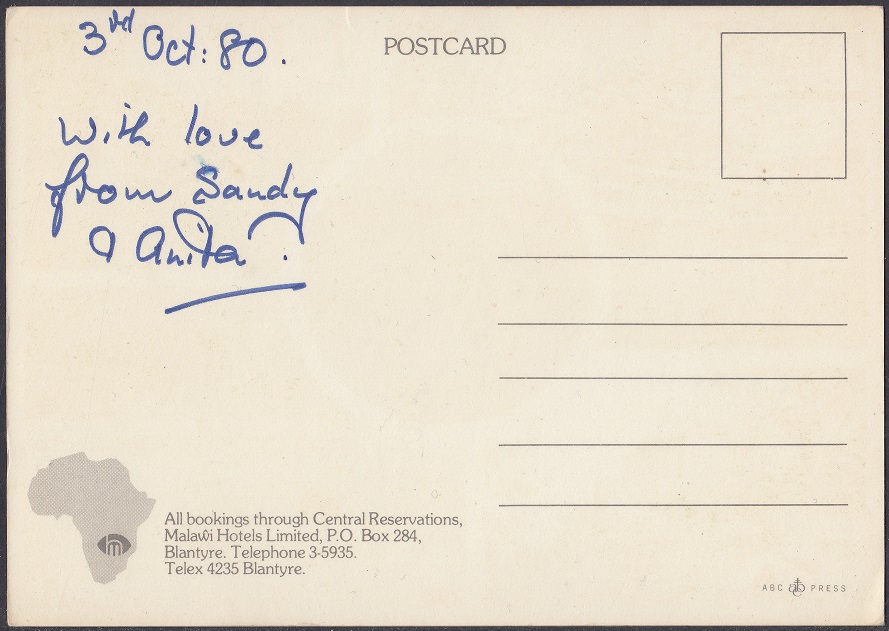 3rd Oct: 80.
POSTCARD
With love
from Sandy
& Anita.
All bookings through Central Reservations,
Malaŵi Hotels Limited, P.O. Box 284,
Blantyre. Telephone 3-5935.
Telex 4235 Blantyre.
hm
ABC abc PRESS